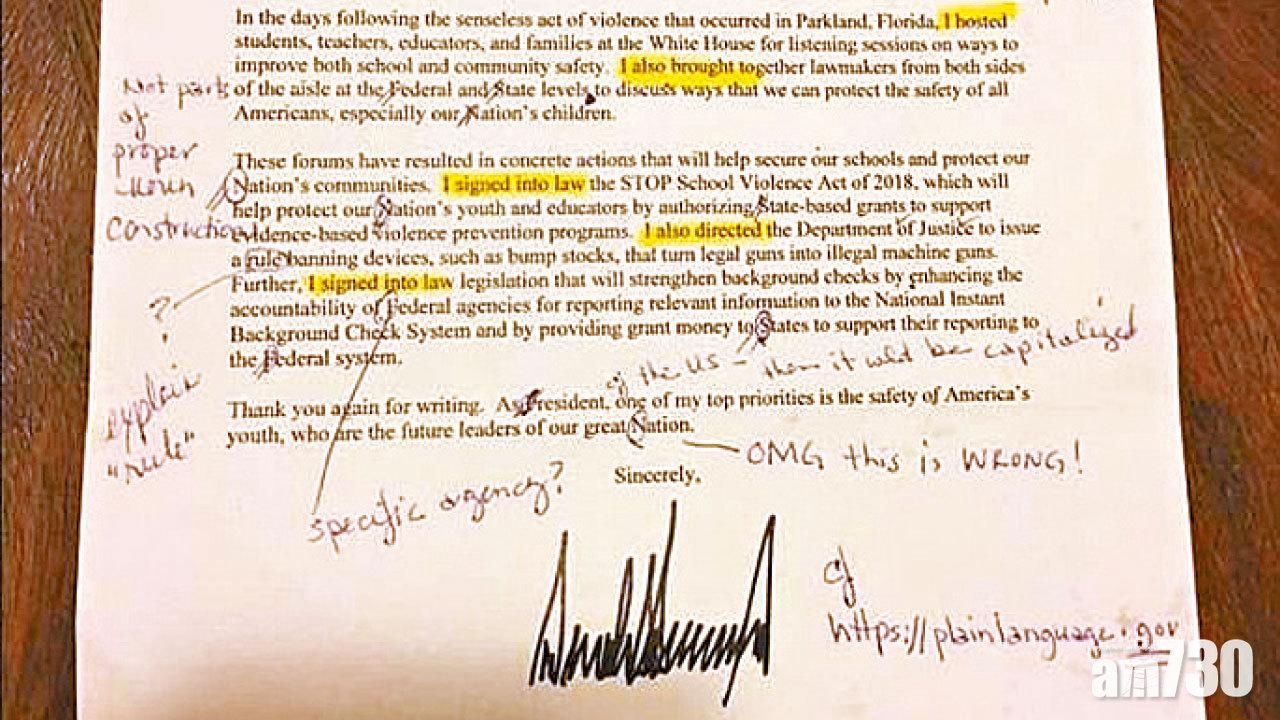 In the days following the senseless act of violence that occurred in Parkland, Florida, I hosted
students, teachers, educators, and families at the White House for listening sessions on ways to
improve both school and community safety. I also brought together lawmakers from both sides
of the aisle at the Federal and State levels to discuss ways that we can protect the safety of all
Americans, especially our Nation's children.
Not part
of
proper
noun
construction
These forums have resulted in concrete actions that will help secure our schools and protect our
Nation's communities. I signed into law the STOP School Violence Act of 2018, which will
help protect our Nation's youth and educators by authorizing State-based grants to support
evidence-based violence prevention programs. I also directed the Department of Justice to issue
a rule banning devices, such as bump stocks, that turn legal guns into illegal machine guns.
Further, I signed into law legislation that will strengthen background checks by enhancing the
accountability of Federal agencies for reporting relevant information to the National Instant
Background Check System and by providing grant money to States to support their reporting to
the Federal system.
?
explain
"rule"
of the US - then it wld be capitalized
Thank you again for writing. As President, one of my top priorities is the safety of America's
youth, who are the future leaders of our great Nation.
OMG this is WRONG!
Sincerely,
specific agency?
cf
https://plainlanguage.gov
am730